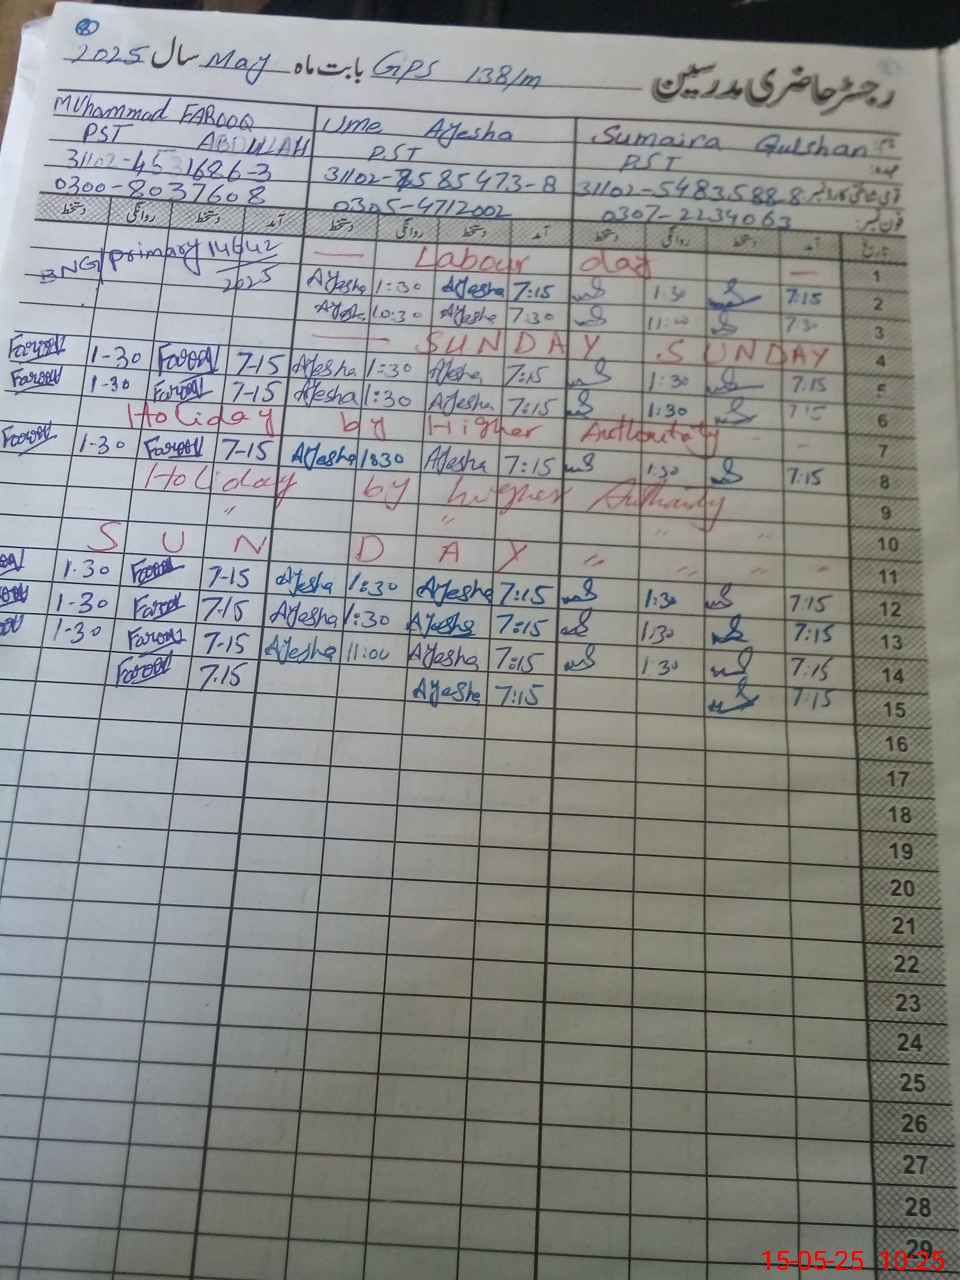 رجسٹر حاضری مدرسین GPS 138/m بابت ماه May سال 2025
Muhammad FAROOQ ABDULLAH Ume Ayesha Sumaira Gulshan
PST PST PST
31102-4531686-3 31102-7585473-8 31102-5483588-8
0300-8037608 0305-4712002 0307-2234063 فون نمبر
دستخط روانگی دستخط آمد دستخط روانگی دستخط آمد دستخط روانگی دستخط آمد تاریخ
primary 14642 — Labour day — 1
2025 Ayesha 1:30 Ayesha 7:15 1:30 7:15 2
Ayesha 10:30 Ayesha 7:30 7:30 3
— SUNDAY SUNDAY 4
Farooq 1-30 Farooq 7-15 Ayesha 1:30 Ayesha 7:15 1:30 7:15 5
Farooq 1-30 Farooq 7-15 Ayesha 1:30 Ayesha 7:15 1:30 7:15 6
Holiday by Higher 7
Farooq 1-30 Farooq 7-15 Ayesha 1:30 Ayesha 7:15 1:30 7:15 8
Holiday by higher Authority 9
" " " " 10
SUNDAY " " " " 11
1-30 Farooq 7-15 Ayesha 1:30 Ayesha 7:15 1:30 7:15 12
1-30 Farooq 7-15 Ayesha 1:30 Ayesha 7:15 1:30 7:15 13
1-30 Farooq 7-15 Ayesha 11:00 Ayesha 7:15 1:30 7:15 14
Farooq 7.15 Ayesha 7:15 7:15 15
16
17
18
19
20
21
22
23
24
25
26
27
28
29
15-05-25 10:25